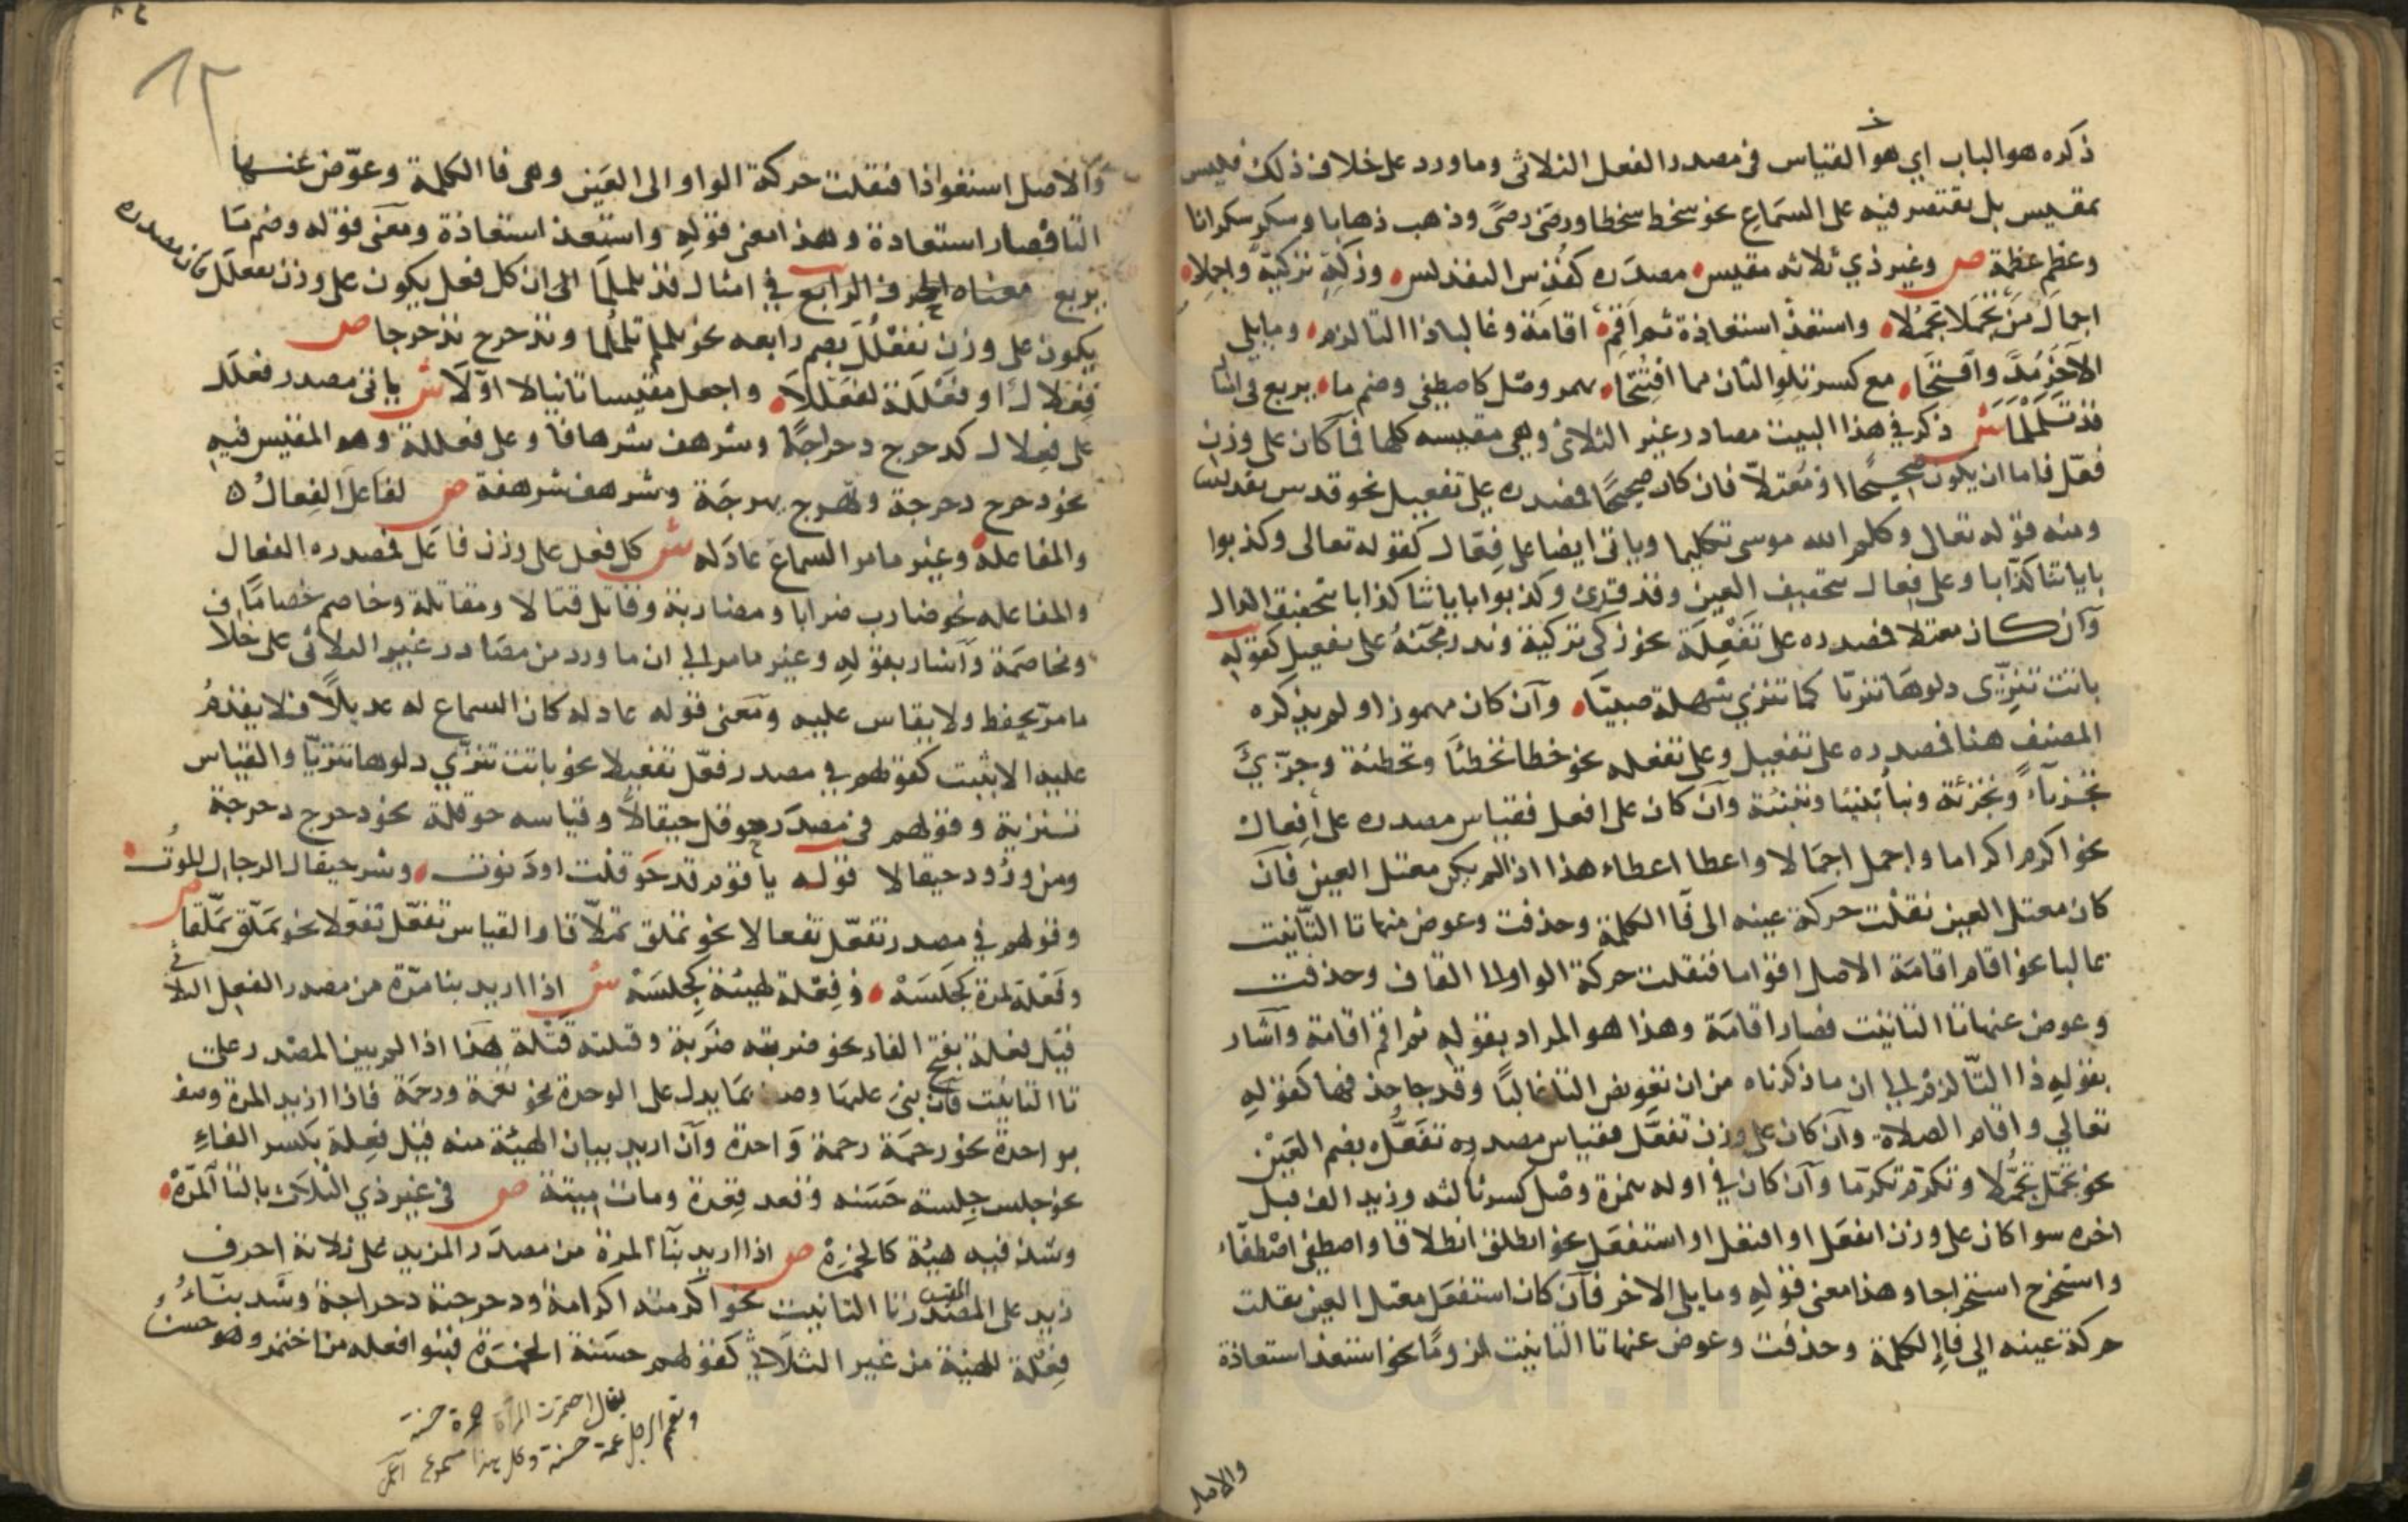 ذكره هو الباب اي هو القياس في مصدر الفعل الثلاثي وما ورد على خلاف ذلك فليس
بمقيس بل يقتصر فيه على السماع نحو سخط سخطا ورضى رضىً وذهب ذهابا وشكر شكرانا
وعظم عظمة ص وغير ذي ثلاثه مقيس مصدره كقدس التقديس وزكه تزكيةً واجملا
اجمال من تجملا تجملا واستعذ استعاذة ثم اقم اقامة وغالبا ذا التا لزم وما يلي
الآخر مد وافتحا مع كسر تلو الثان مما افتتحا بهمز وصل كاصطفى وضم ما يربع في امثال
قد تلملما ش ذكر في هذا البيت مصادر غير الثلاثي وهي مقيسه كلها فما كان على وزن
فعّل فاما ان يكون صحيحا او معتلا فان كان صحيحا فمصدره على تفعيل نحو قدس تقديسا
ومنه قوله تعالى وكلم الله موسى تكليما وياتي ايضا على فِعّال كقوله تعالى وكذبوا
باياتنا كذّابا وعلى فعال بتخفيف العين وقد قرئ وكذبوا باياتنا كذابا بتخفيف الذال
وان كان معتلا فمصدره على تَفْعِلَة نحو زكى تزكية وندر مجيئه على تفعيل كقوله
باتت تنزّى دلوها تنزيّا كما تنزي شهلة صبيّا وان كان مهموزا ولم يذكره
المصنف هنا فمصدره على تفعيل وعلى تفعله نحو خطا تخطئًا وتخطئة وجزّئ
تجزيأً وتجزئة ونبأ تنبيا وتنبئة وان كان على افعل فقياس مصدره على إفعال
نحو اكرم اكراما واجمل اجمالا واعطا اعطاء هذا اذا لم يكن معتل العين فان
كان معتل العين نقلت حركة عينه الى فا الكلمة وحذفت وعوض منها تا التانيث
غالبا نحو اقام اقامة الاصل اقواما فنقلت حركة الواو الى القاف وحذفت
وعوض عنها تا التانيث فصار اقامة وهذا هو المراد بقوله ثم اقم اقامة واشار
بقوله ذا التا لزم الى ان ما ذكرناه من ان تعويض التا غالبًا وقد جا حذفها كقوله
تعالي واقام الصلاة وان كان على وزن تفعّل فقياس مصدره تفعُّل بضم العين
نحو تجمّل تجمُّلا وتكرّم تكرّما وان كان في اوله همزة وصل كسر ثالثه وزيد الف قبل
اخره سوا كان على وزن انفعل او افتعل او استفعل نحو انطلق انطلاقا واصطفى اصطفاء
واستخرج استخراجا وهذا معنى قوله وما يلي الاخر فان كان استفعل معتل العين نقلت
حركة عينه الي فاء الكلمة وحذفت وعوض عنها تا التانيث لزومًا نحو استعذ استعاذة
والاصل
والاصل استعواذا فنقلت حركة الواو الى العين وهي فا الكلمة وعوّض عنها
التا فصار استعاذة وهذا معنى قوله واستعذ استعاذة ومعنى قوله وضم ما
يربع معناه الحرف الرابع في امثال قد تلملما الى ان كل فعل يكون على وزن تفعلل فان مصدره
يكون على وزن تفعلُل بضم رابعه نحو تلملم تلملُما وتدحرج تدحرجا ص
فعلال او فعللة لفعللا واجعل مقيسا ثانيا لا اوّلا ش ياتي مصدر فعلل
على فعلال كدحرج دحراجًا وشرهف شرهافا وعلى فعللة وهو المقيس فيه
نحو دحرج دحرجة وبهرج بهرجة وشرهف شرهفة ص لفاعل الفعال
والمفاعله وغير ما مر السماع عادله ش كل فعل على وزن فاعل فمصدره الفعال
والمفاعله نحو ضارب ضرابا ومضاربة وقاتل قتالا ومقاتلة وخاصم خصاما
ومخاصمة واشار بقوله وغير ما مر الى ان ما ورد من مصادر غير الثلاثي على خلاف
ما مر يحفظ ولا يقاس عليه ومعنى قوله عادله كان السماع له عديلا فلا يقدم
عليه الا بثبت كقولهم في مصدر فعّل تفعيلا نحو باتت تنزّي دلوها تنزيّا والقياس
تنزية وقولهم في مصدر حوقل حيقالا وقياسه حوقلة نحو دحرج دحرجة
ومن ورود حيقالا قوله يا قوم قد حوقلت او دنوت وشر حيقال الرجال الموت
وقولهم في مصدر تفعّل تفعالا نحو تملق تملّاقا والقياس تفعّل تفعّلا نحو تملّق تملّقا ص
وفَعلة لمرة كجَلسه وفِعلة لهيئة كجِلسه ش اذا اريد بنا مرّة من مصدر الفعل الثلاثي
قيل فعلة بفتح الفاء نحو ضربته ضَربة وقتلته قَتلة هذا اذا لم يبين المصدر على
تا التانيث فان بني عليها وصف بما يدل على الوحدة نحو نعمة ورحمة فاذا اريد المرة وصف
بواحدة نحو رحمة رحمة واحدة وان اريد بيان الهيئة منه قيل فِعلة بكسر الفاء
نحو جلس جِلسة حسنه وقعد قِعدة ومات ميتة ص في غير ذي الثلاث بالتا المرّه
وشذ فيه هيئة كالخمره ص اذا اريد بنا المرة من مصدر المزيد على ثلاثة احرف
زيد على المصدر تا التانيث نحو اكرمته اكرامة ودحرجته دحراجة وشد بناءُ
فِعلة للهيئة من غير الثلاثي كقولهم حسنة الخمرة فبنوا فعله من اختمر وهو حسن
يقال اختمرت المرأة خمرة حسنة
وتعمم الرجل عمة حسنة وكل هذا مسموع